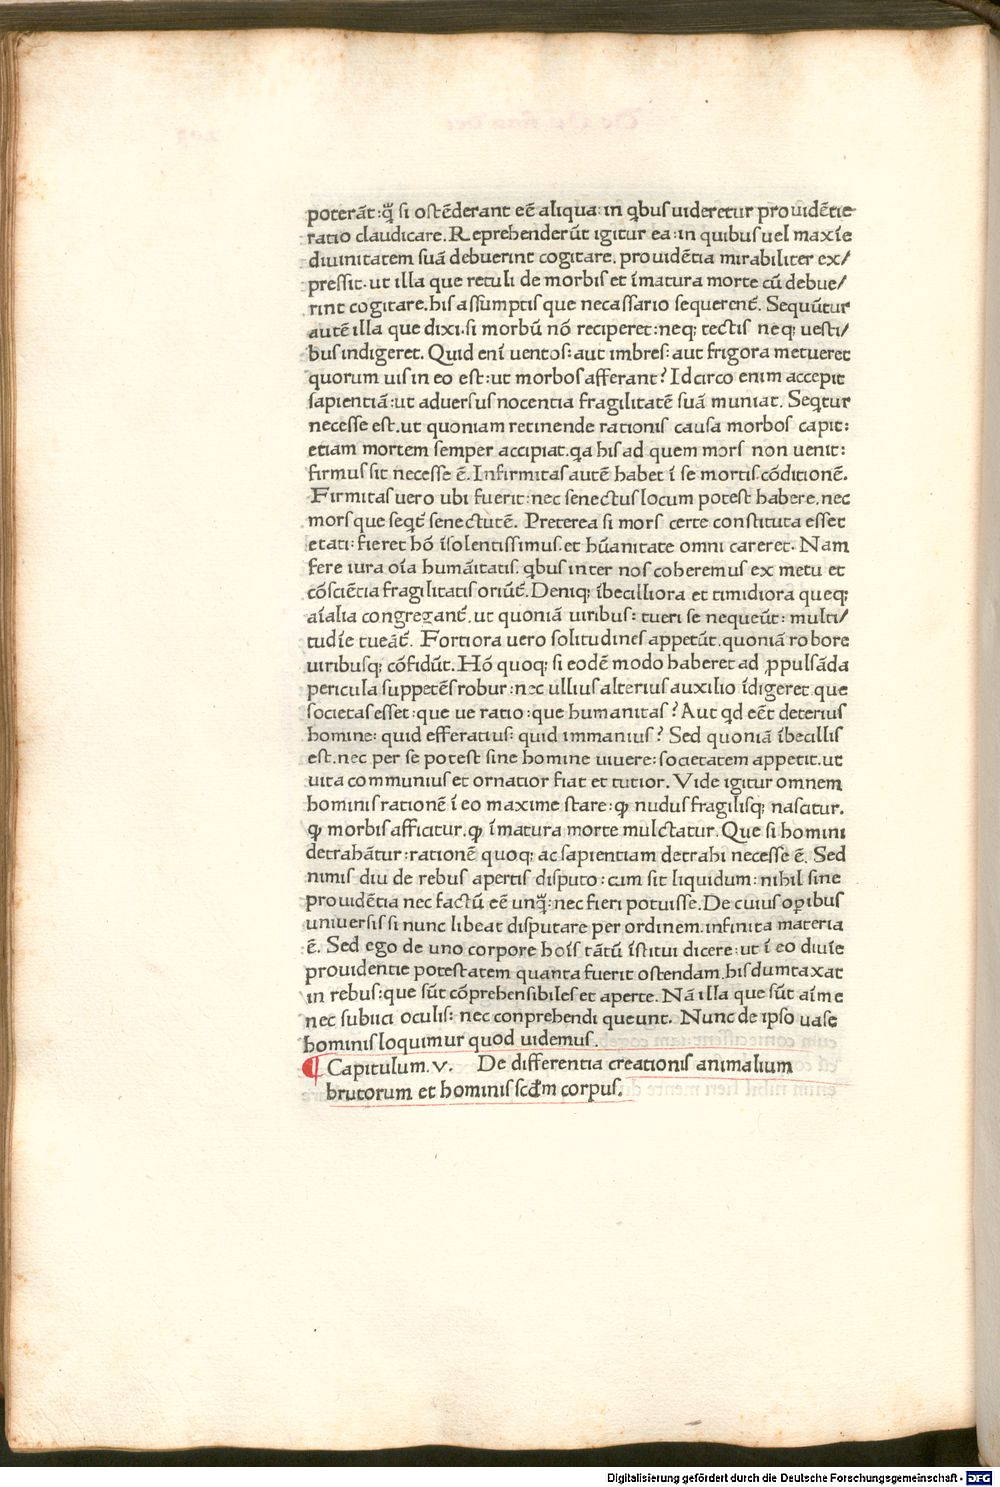 poterāt:q̄ si ostēderant eē aliqua: in qbus uideretur prouidētie
ratio claudicare. Reprehenderūt igitur ea: in quibus uel maxīe
diuinitatem suā debuerint cogitare. prouidētia mirabiliter ex/
pressit. ut illa que retuli de morbis et īmatura morte cū debue/
rint cogitare. his assumptis que necassario sequerent̄. Sequūtur
autē illa que dixi. si morbū nō reciperet: neq; tectis neq; uesti/
bus indigeret. Quid enī uentos: aut imbres: aut frigora metueret
quorum uis in eo est: ut morbos afferant? Idcirco enim accepit
sapientiā: ut aduersus nocentia fragilitatē suā muniat. Seqtur
necesse est. ut quoniam retinende rationis causa morbos capit:
etiam mortem semper accipiat. qa his ad quem mors non uenit:
firmus sit necesse ē. Infirmitas autē habet ī se mortis cōditionē.
Firmitas uero ubi fuerit: nec senectus locum potest habere. nec
mors que seqt̄ senectutē. Preterea si mors certe constituta esset
etati: fieret hō īsolentissimus. et hūanitate omni careret. Nam
fere iura oīa humāitatis. qbus inter nos coheremus ex metu et
cōsciētia fragilitatis oriūt̄. Deniq; ībecilliora et timidiora queq;
aīalia congregant̄. ut quoniā uiribus: tueri se nequeūt: multi/
tudīe tueāt̄. Fortiora uero solitudines appetūt. quoniā robore
uiribusq; cōfidūt. Hō quoq; si eodē modo haberet ad ꝓpulsāda
pericula suppetēs robur: nec ullius alterius auxilio īdigeret que
societas esset: que ue ratio: que humanitas? Aut qd eēt deterius
homine: quid efferatius: quid immanius? Sed quoniā ībecillis
est. nec per se potest sine homine uiuere: societatem appetit. ut
uita communius et ornatior fiat et tutior. Vide igitur omnem
hominis rationē ī eo maxime stare: ꝙ nudus fragilisq; nascitur.
ꝙ morbis afficitur. ꝙ īmatura morte mulctatur. Que si homini
detrahātur: rationē quoq; ac sapientiam detrahi necesse ē. Sed
nimis diu de rebus apertis disputo: cum sit liquidum: nihil sine
prouidētia nec factū eē unq̄: nec fieri potuisse. De cuius oꝑibus
uniuersis si nunc libeat disputare per ordinem. infinita materia
ē. Sed ego de uno corpore hoīs tātū īstitui dicere: ut ī eo diuīe
prouidentie potestatem quanta fuerit ostendam. his dumtaxat
in rebus: que sūt cōprehensibiles et aperte. Nā illa que sūt aīme
nec subiici oculis: nec conprehendi queunt. Nunc de ipso uase
hominis loquimur quod uidemus.
¶ Capitulum. v. De differentia creationis animalium
brutorum et hominis scdm corpus.
Digitalisierung gefördert durch die Deutsche Forschungsgemeinschaft - DFG